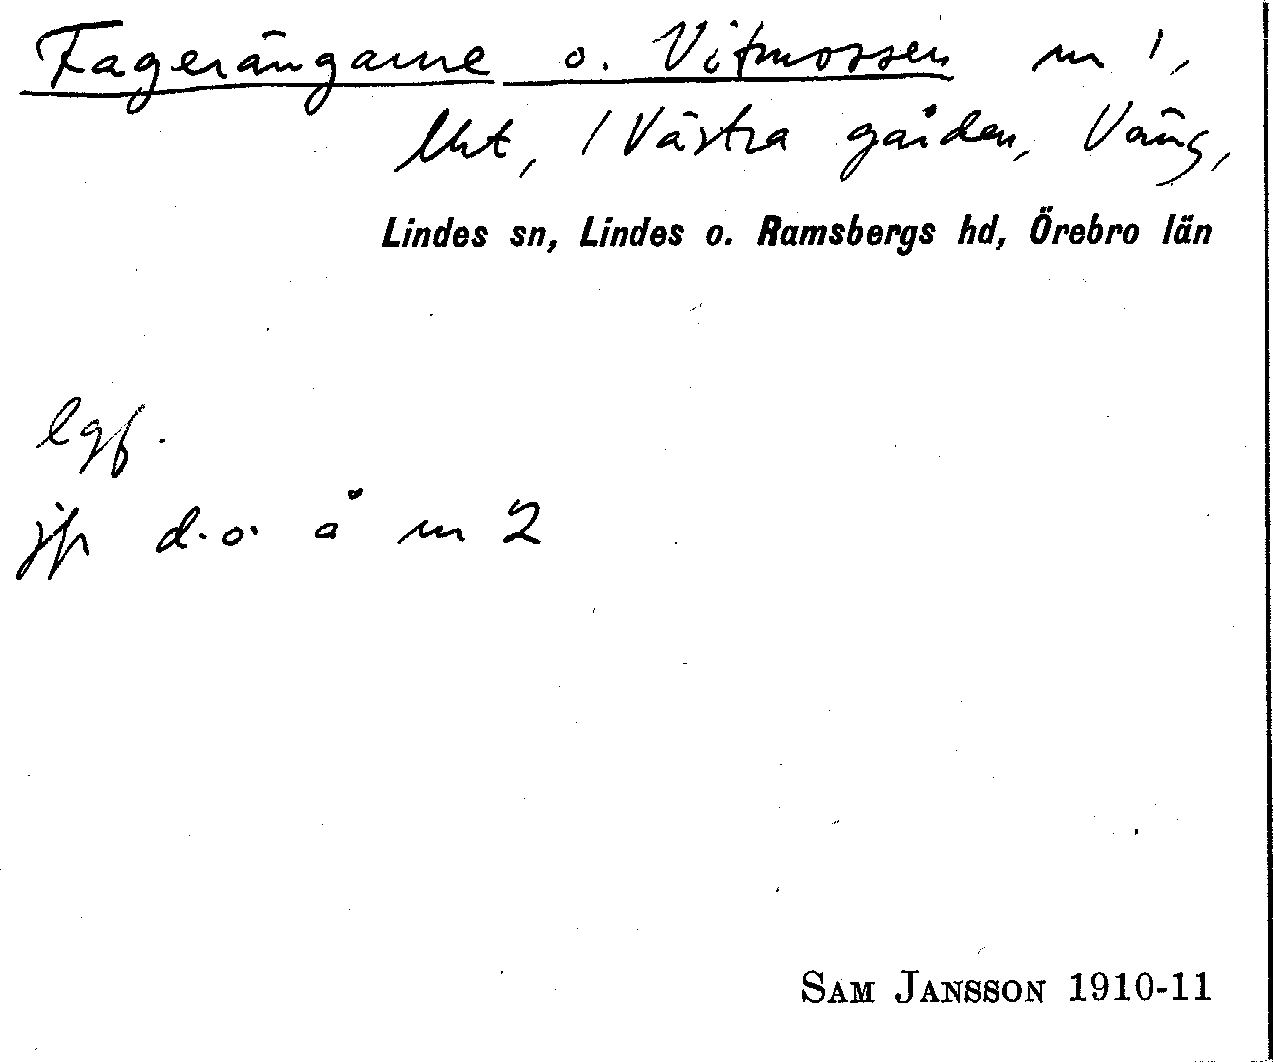 Fagerängarne o. Vitmossen nr 1,
Utt, / Västra gården, Väng,
Lindes sn, Lindes o. Ramsbergs hd, Örebro län
lgf.
jfr d.o. å nr 2
SAM JANSSON 1910-11